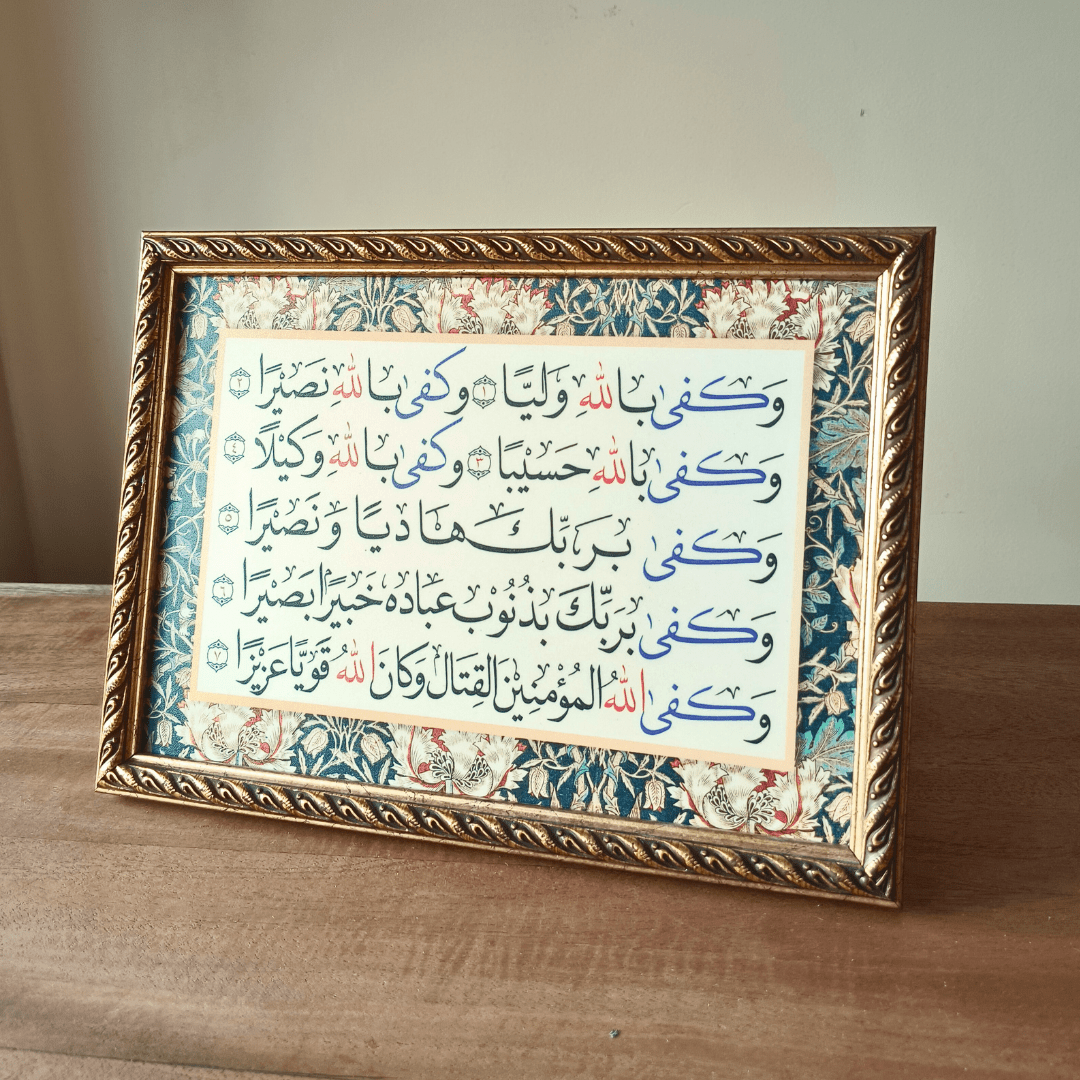 وَكَفىٰ بِاللّٰهِ وَلِيًّا ١ وكَفىٰ بِاللّٰهِ نَصِيْرًا ٢
وَكَفىٰ بِاللّٰهِ حَسِيْبًا ٣ وكَفىٰ بِاللّٰهِ وَكِيْلًا ٤
وَكَفىٰ بِرَبِّكَ هَادِيًا وَنَصِيْرًا ٥
وَكَفىٰ بِرَبِّكَ بِذُنُوْبِ عِبَادِهِ خَبِيْرًا بَصِيْرًا ٦
وَكَفىٰ اللّٰهُ المُؤْمِنِيْنَ القِتَالَ وَكَانَ اللّٰهُ قَوِيًّا عَزِيْزًا ٧